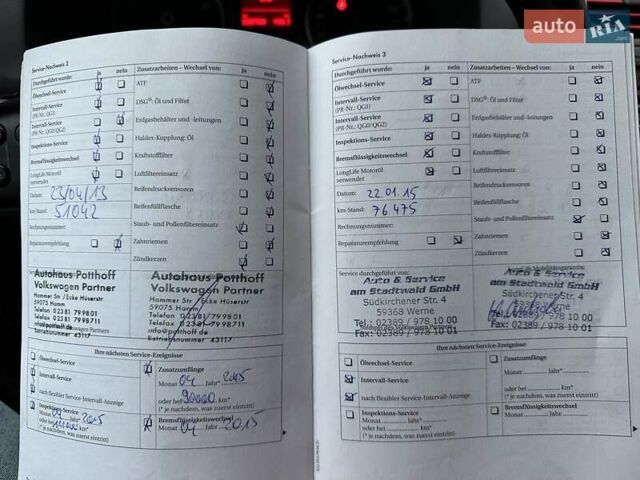 auto RIA
.com
Service-Nachweis 2
Durchgeführt wurde: ja nein
Zusatzarbeiten – Wechsel von: ja nein
Ölwechsel-Service
ATF
Intervall-Service
(PR-Nr.: QG1)
DSG®: Öl und Filter
Intervall-Service
(PR-Nr.: QG0/QG2)
Erdgasbehälter und -leitungen
Inspektions-Service
Haldex-Kupplung: Öl
Bremsflüssigkeitswechsel
Kraftstofffilter
LongLife Motoröl
verwendet
Luftfiltereinsatz
Datum: 23/04/13
Reifendrucksensoren
km-Stand: 51042
Reifenfüllflasche
Rechnungsnummer:
Staub- und Pollenfiltereinsatz
Reparaturempfehlung
Zahnriemen
Zündkerzen
Autohaus Potthoff
Volkswagen Partner
Hammer Str / Ecke Hüserstr
59075 Hamm
Telefon 02381 / 79907
Telefax 02381 7998711
info@potthoff.de
Betriebsnummer 43117
Ihre nächsten Service-Ereignisse
Ölwechsel-Service
Zusatzumfänge
Monat 04 Jahr* 2015
Intervall-Service
oder bei 90000 km*
(* je nachdem, was zuerst eintritt)
nach flexibler Service-Intervall-Anzeige
Inspektions-Service
Monat 04 2015
oder bei km*
(* je nachdem, was zuerst eintritt)
Bremsflüssigkeitswechsel
Monat 04 Jahr 2015
Service-Nachweis 3
Durchgeführt wurde: ja nein
Zusatzarbeiten – Wechsel von: ja nein
Ölwechsel-Service
ATF
Intervall-Service
(PR-Nr.: QG1)
DSG®: Öl und Filter
Intervall-Service
(PR-Nr.: QG0/QG2)
Erdgasbehälter und -leitungen
Inspektions-Service
Haldex-Kupplung: Öl
Bremsflüssigkeitswechsel
Kraftstofffilter
LongLife Motoröl
verwendet
Luftfiltereinsatz
Datum: 22.01.15
Reifendrucksensoren
km-Stand: 76.475
Reifenfüllflasche
Rechnungsnummer:
Staub- und Pollenfiltereinsatz
Reparaturempfehlung
Zahnriemen
Zündkerzen
Service durchgeführt von:
Auto & Service
am Stadtwald GmbH
Südkirchener Str. 4
59368 Werne
Tel.: 02389 / 978 10 00
Fax: 02389 / 978 10 01
Auto & Service
am Stadtwald GmbH
Südkirchener Str. 4
Werne
978 10 00
Fax: 02389 / 978 10 01
Ihre nächsten Service-Ereignisse
Ölwechsel-Service
Zusatzumfänge
Monat Jahr*
Intervall-Service
oder bei km*
(* je nachdem, was zuerst eintritt)
nach flexibler Service-Intervall-Anzeige
Inspektions-Service
Monat Jahr*
oder bei km*
(* je nachdem, was zuerst eintritt)
Bremsflüssigkeitswechsel
Monat Jahr